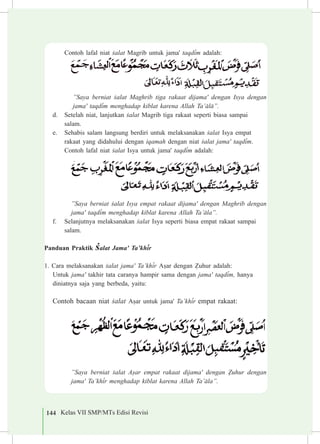 Contoh lafal niat śalat Magrib untuk jama' taqdĩm adalah:
اُصَلِّى فَرْضَ الْمَغْرِبِ ثَلَاثَ رَكَعَاتٍ مَجْمُوْعًا مَعَ الْعِشَاءِ جَمْعَ
تَقْدِيْمٍ مُسْتَقْبِلَ الْقِبْلَةِ اَدَاءً لِلّٰهِ تَعَالَى
"Saya berniat śalat Maghrib tiga rakaat dijama' dengan Isya dengan
jama' taqdĩm menghadap kiblat karena Allah Ta'ālā".
d. Setelah niat, lanjutkan śalat Magrib tiga rakaat seperti biasa sampai
salam.
e. Sehabis salam langsung berdiri untuk melaksanakan śalat Isya empat
rakaat yang didahului dengan iqamah dengan niat śalat jama' taqdĩm.
Contoh lafal niat śalat Isya untuk jama' taqdĩm adalah:
اُصَلِّى فَرْضَ الْعِشَاءِ اَرْبَعَ رَكَعَاتٍ مَجْمُوْعًا مَعَ الْمَغْرِبِ جَمْعَ
تَقْدِيْمٍ مُسْتَقْبِلَ الْقِبْلَةِ اَدَاءً لِلّٰهِ تَعَالَى
"Saya berniat śalat Isya empat rakaat dijama' dengan Maghrib dengan
jama' taqdĩm menghadap kiblat karena Allah Ta'āla".
f. Selanjutnya melaksanakan śalat Isya seperti biasa empat rakaat sampai
salam.
Panduan Praktik Śalat Jama' Ta'khĩr
1. Cara melaksanakan śalat jama' Ta'khĩr Aṣar dengan Ẓuhur adalah:
Untuk jama' takhir tata caranya hampir sama dengan jama' taqdĩm, hanya
diniatnya saja yang berbeda, yaitu:
Contoh bacaan niat śalat Aṣar untuk jama' Ta'khĩr empat rakaat:
اُصَلِّى فَرْضَ الْعَصْرِ اَرْبَعَ رَكَعَاتٍ مَجْمُوْعًا مَعَ الظُّهْرِ جَمْعَ
تَأْخِيْرٍ مُسْتَقْبِلَ الْقِبْلَةِ اَدَاءً لِلّٰهِ تَعَالَى
"Saya berniat śalat Aṣar empat rakaat dijama' dengan Ẓuhur dengan
jama' Ta'khĩr menghadap kiblat karena Allah Ta'āla".
144 Kelas VII SMP/MTs Edisi Revisi